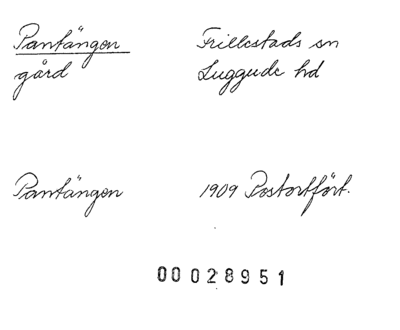 Pantängen Frillestads sn
gård Luggude hd
Pantängen 1909 Postortfört.
00 028951